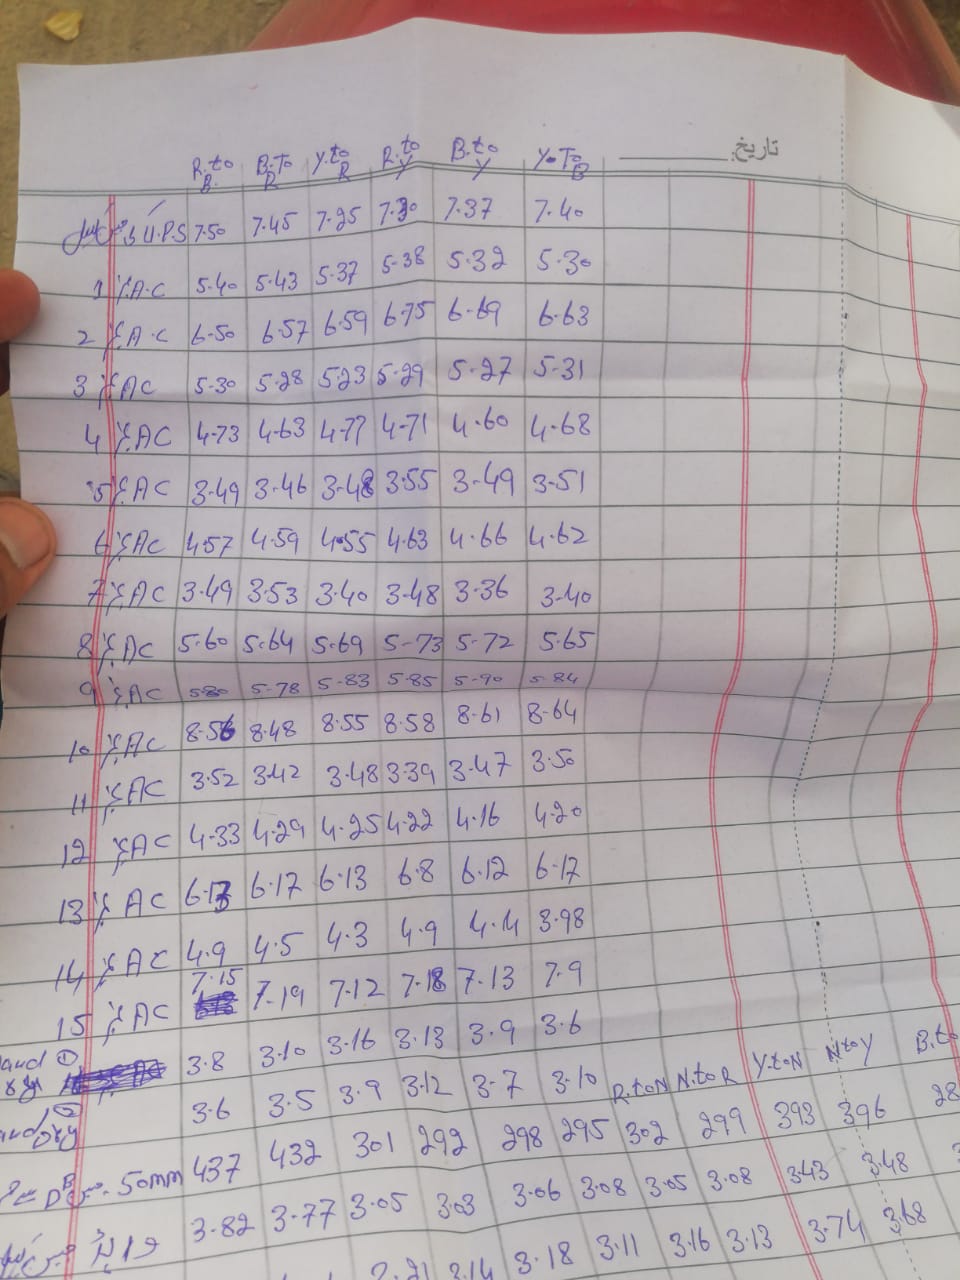 تاریخ
R.to B. B.To R Y.to R R.to Y B.to Y Y.To B
U.P.S 7.50 7.45 7.25 7.30 7.37 7.40
1 A.C 5.40 5.43 5.37 5.38 5.32 5.30
2 A.C 6.50 6.57 6.59 6.75 6.69 6.63
3 AC 5.30 5.28 5.23 5.29 5.27 5.31
4 AC 4.73 4.63 4.77 4.71 4.60 4.68
5 AC 3.49 3.46 3.48 3.55 3.49 3.51
6 AC 4.57 4.59 4.55 4.63 4.66 4.62
7 AC 3.49 3.53 3.40 3.48 3.36 3.40
8 AC 5.60 5.64 5.69 5.73 5.72 5.65
9 AC 5.80 5.78 5.83 5.85 5.90 5.84
10 AC 8.56 8.48 8.55 8.58 8.61 8.64
11 AC 3.52 3.42 3.48 3.39 3.47 3.50
12 AC 4.33 4.29 4.25 4.22 4.16 4.20
13 AC 6.13 6.17 6.13 6.8 6.12 6.17
14 AC 4.9 4.5 4.3 4.9 4.14 3.98
15 AC 7.15 7.19 7.12 7.18 7.13 7.9
3.8 3.10 3.16 3.13 3.9 3.6
3.6 3.5 3.9 3.12 3.7 3.10 R.toN N.to R Y.toN N to Y B.to
DB 50mm 437 432 301 292 298 295 302 299 393 396 28
3.82 3.77 3.05 3.03 3.06 3.08 3.05 3.08 3.43 3.48
3.14 3.18 3.11 3.16 3.13 3.74 3.68